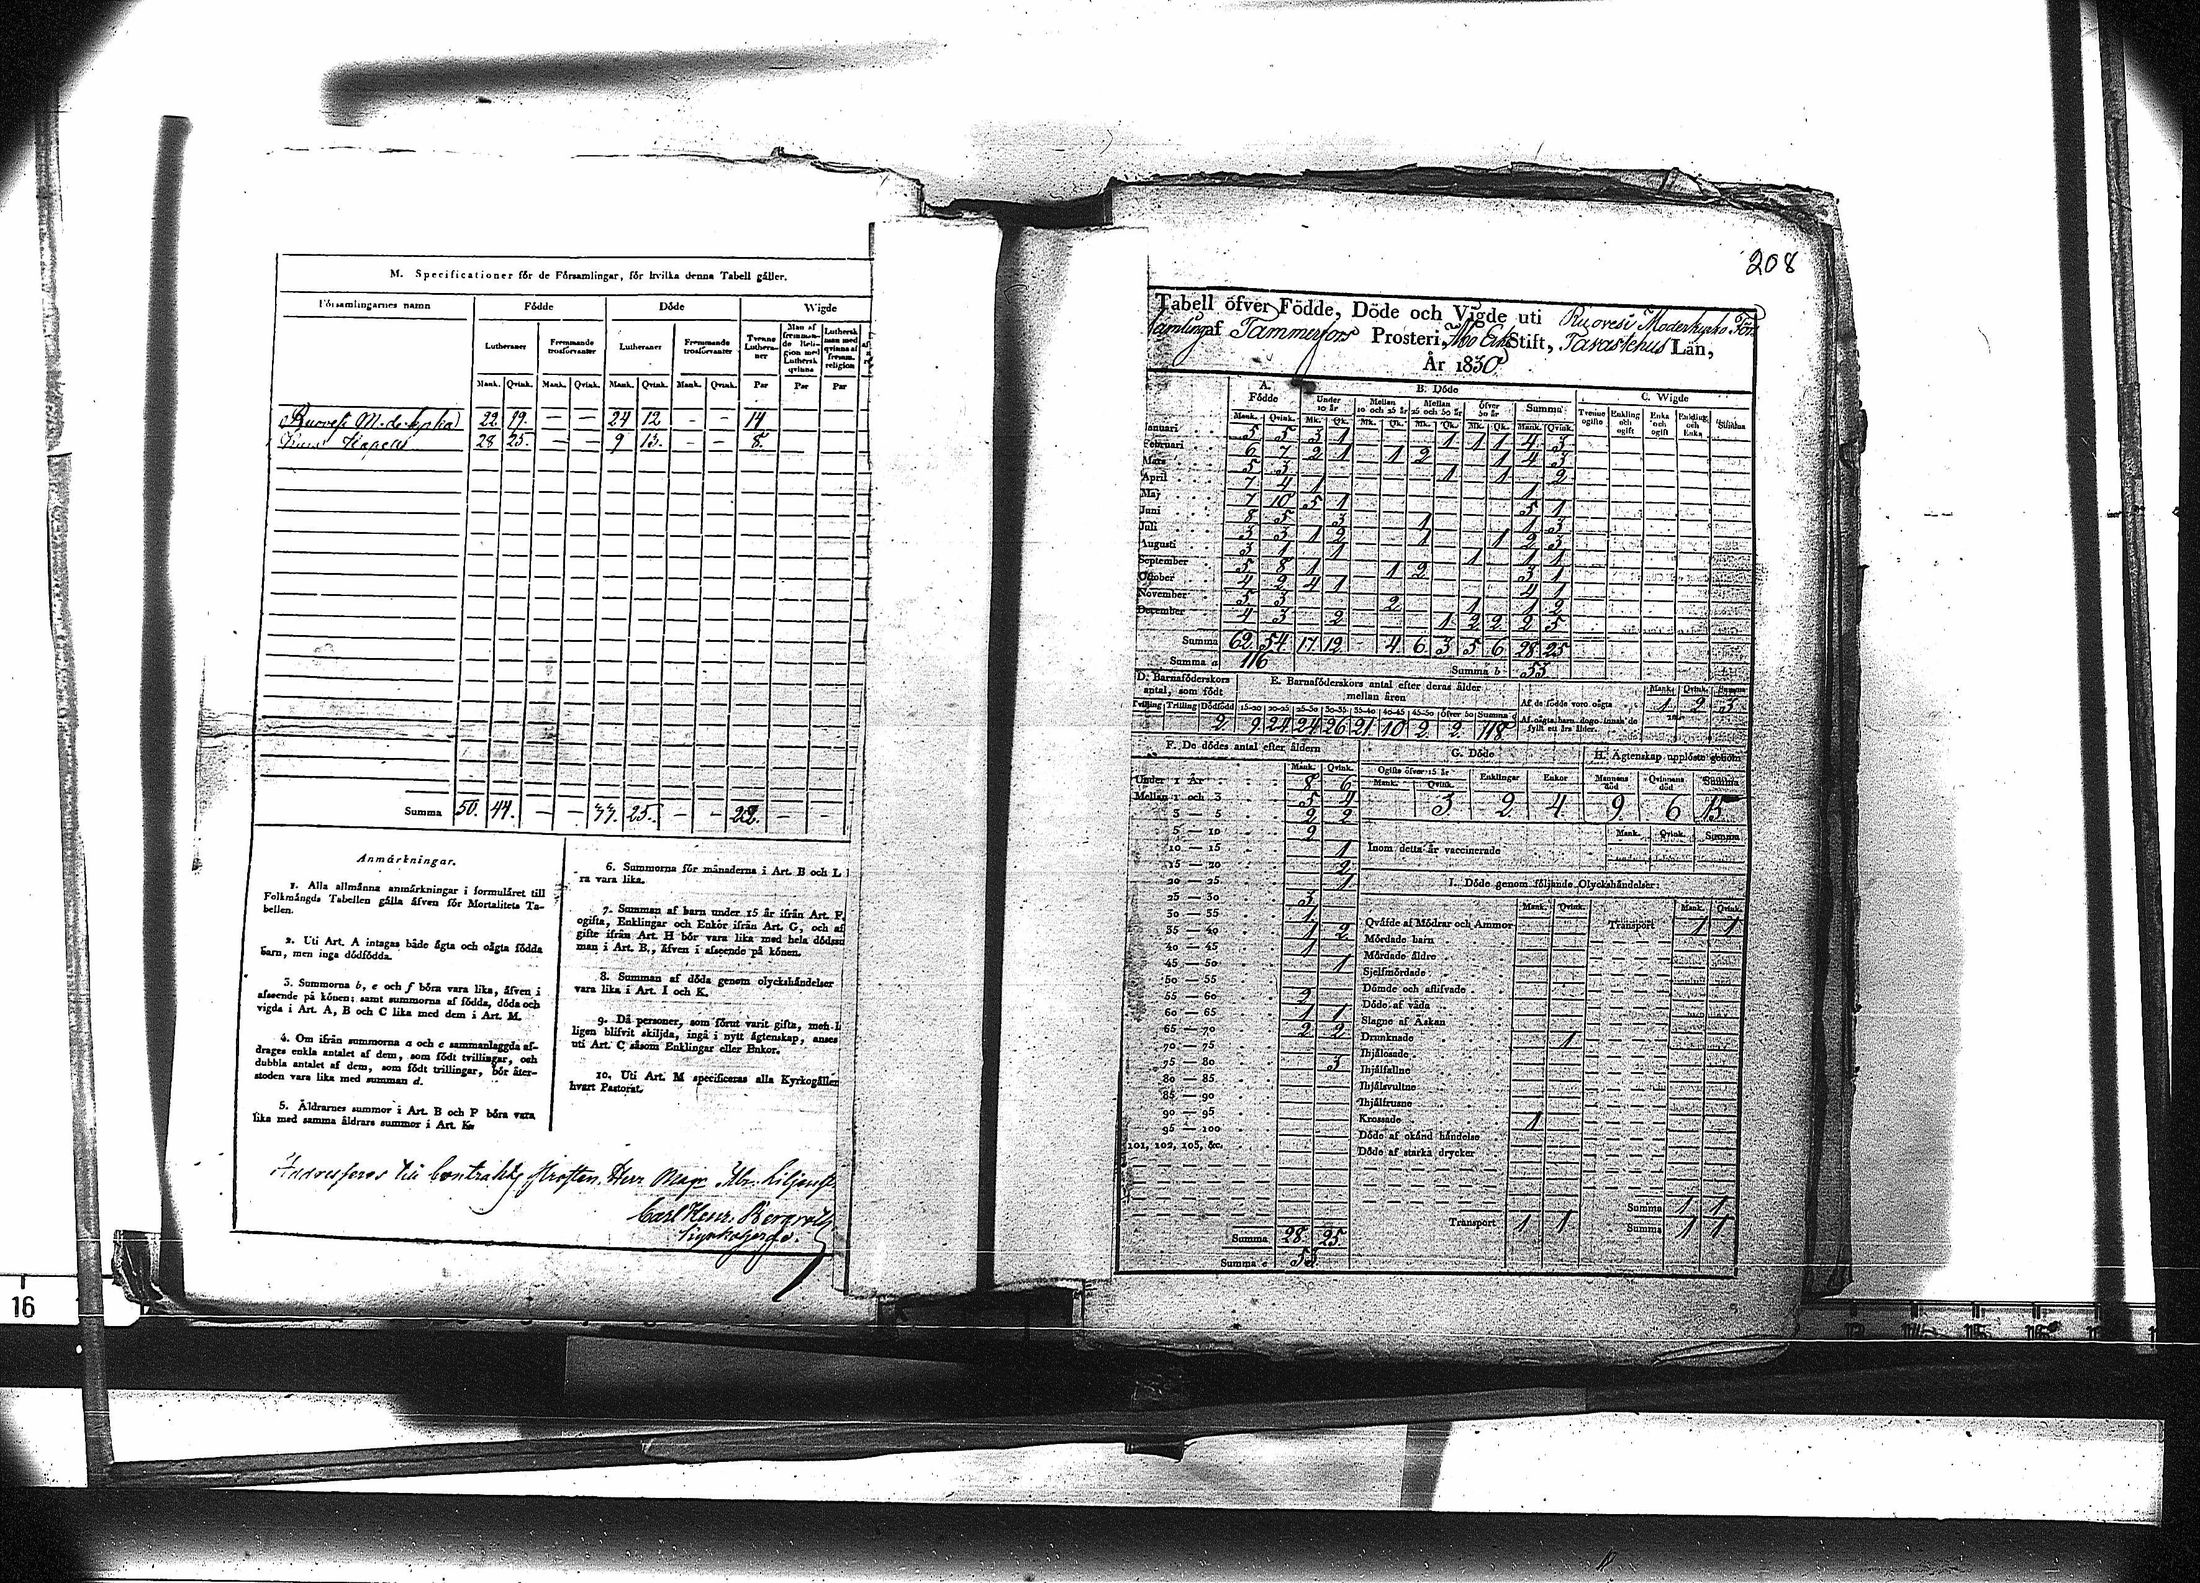 M. Specificationer för de Församlingar, för hvilka denna Tabell gäller.
Församlingarnes namn Födde Döde Wigde
Lutheraner Fremmande trosförvanter Lutheraner Fremmande trosförvanter Tvenne Lutheraner Man af fremmande Religion med Luthersk qvinna Luthersk man med qvinna af fremm. religion
Mank. Qvink. Mank. Qvink. Mank. Qvink. Mank. Qvink. Par Par Par
Ruovesi 22 19. — — 24 12 — — 14
Kapell 28 25. — — 9 13. — — 8.
Summa 50. 44. — — 33. 25. — — 22. — —
Anmärkningar.
1. Alla allmänna anmärkningar i formuläret till
Folkmängds Tabellen gälla äfven för Mortalitets Ta-
bellen.
2. Uti Art. A intagas både ägta och oägta födda
barn, men inga dödfödda.
3. Summorna b, e och f böra vara lika, äfven i
afseende på könen; samt summorna af födda, döda och
vigda i Art. A, B och C lika med dem i Art. M.
4. Om ifrån summorna a och c sammanlaggda af-
drages enkla antalet af dem, som födt tvillingar, och
dubbla antalet af dem, som födt trillingar, bör åter-
stoden vara lika med summan d.
5. Åldrarnes summor i Art. B och F böra vara
lika med samma åldrars summor i Art. K.
6. Summorna för månaderna i Art. B och L
ra vara lika.
7. Summan af barn under 15 år ifrån Art. F,
ogifta, Enklingar och Enkor ifrån Art. G, och af
gifte ifrån Art. H bör vara lika med hela dödssu
man i Art. B., äfven i afseende på könen.
8. Summan af döda genom olyckshändelser
vara lika i Art. I och K.
9. Då personer, som förut varit gifta, men
ligen blifvit skiljda, ingå i nytt ägtenskap, anses
uti Art. C såsom Enklingar eller Enkor.
10. Uti Art. M specificeras alla Kyrkogäller
hvart Pastorat.
Herr
Carl Henr. Bergroth
Kyrkoherde.
208
Tabell öfver Födde, Döde och Vigde uti Ruovesi Moderkyrko För
samling af Tammerfors Prosteri, Åbo Erke Stift, Tavastehus Län,
År 1830.
A. Födde B. Döde C. Wigde
Under 10 år Mellan 10 och 25 år Mellan 25 och 50 år Öfver 50 år Summa Tvenne ogifte Enkling och ogift Enka och ogift Enkling och Enka Summa
Mank. Qvink. Mk. Qk. Mk. Qk. Mk. Qk. Mk. Qk. Mank. Qvink.
Januari 5 5 3 1 1 1 1 4 3
Februari 6 7 2 1 1 2 1 4 3
Mars 5 3 1 1 2
April 7 4 1 1
Maj 7 10 5 1 5 1
Juni 8 5 3 1 1 3
Juli 3 3 1 2 1 1 2 3
Augusti 3 1 1 1 1 1
September 5 8 1 1 2 3 1
October 4 2 4 1 4 1
November 5 3 2 1 1 2
December 4 3 2 1 2 2 2 5
Summa 62 54 17 12 4 6 3 5 6 28 25
Summa a 116 Summa b 53
D. Barnaföderskors antal, som födt E. Barnaföderskors antal efter deras ålder mellan åren
Tvilling Trilling Dödfödd 15-20 20-25 25-30 30-35 35-40 40-45 45-50 öfver 50 Summa
2 9 24 24 26 21 10 2 2 118
Mank. Qvink. Summa
Af de födde voro oägta 1 2 3
Af oägta barn dogo innan de fyllt ett års ålder.
F. De dödes antal efter åldern
Mank. Qvink.
Under 1 År 8 6
Mellan 1 och 3 5 4
3 — 5 2 2
5 — 10 2
10 — 15 1
15 — 20 2
20 — 25 1
25 — 30 3
30 — 35 1
35 — 40 1 2
40 — 45 1
45 — 50 1
50 — 55
55 — 60 2
60 — 65 1 1
65 — 70 2 2
70 — 75
75 — 80 3
80 — 85
85 — 90
90 — 95
95 — 100
101, 102, 103, &c.
Summa 28 25
Summa e 53
G. Döde
Ogifte öfver 15 år Enklingar Enkor
Mank. Qvink.
3 2 4
H. Ägtenskap upplöste genom
Mannens död Qvinnans död Summa
9 6 15
Mank. Qvink. Summa
Inom detta år vaccinerade
I. Döde genom följande Olyckshändelser:
Mank. Qvink. Mank. Qvink.
Qväfde af Mödrar och Ammor Transport 1 1
Mördade barn
Mördade äldre
Sjelfmördade
Dömde och aflifvade
Döde af våda
Slagne af Åskan
Drunknade 1
Ihjälosade
Ihjälfallne
Ihjälsvultne
Ihjälfrusne
Krossade 1
Döde af okänd händelse
Döde af starka drycker
Summa 1 1
Transport 1 1 Summa 1 1
16